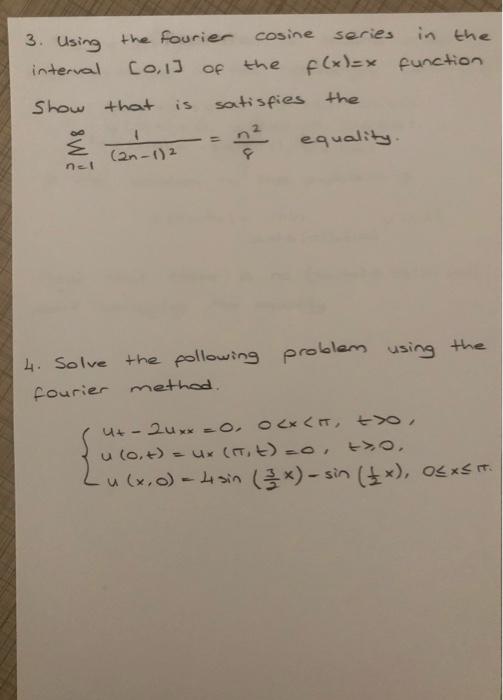 3. Using the fourier cosine series in the
interval [0,1] of the f(x)=x function
Show that is satisfies the
∞
∑ 1/(2n-1)2 = n2/8 equality.
n=1
4. Solve the following problem using the
fourier method.
{ ut - 2uxx = 0, 0<x<π, t>0,
u(0,t) = ux(π,t) = 0, t≥0,
u(x,0) = 4 sin (3/2 x) - sin (1/2 x), 0≤x≤π.